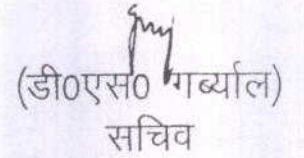 (डी0एस0 गर्ब्याल)
सचिव